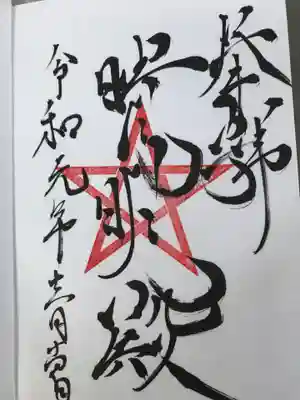 奉拝
明殿
令和元年十二月日